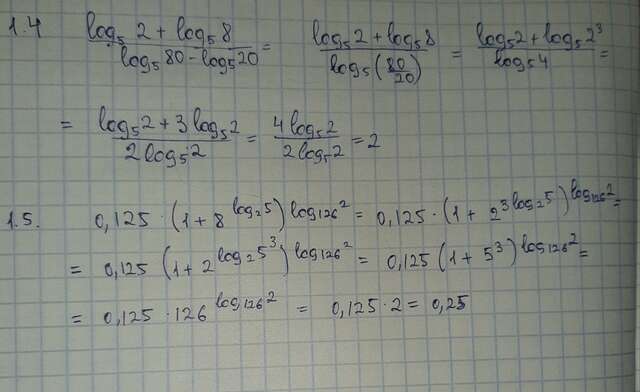 1.4 (log₅2 + log₅8)/(log₅80 - log₅20) = (log₅2 + log₅8)/(log₅(80/20)) = (log₅2 + log₅2³)/(log₅4) =
= (log₅2 + 3log₅2)/(2log₅2) = (4log₅2)/(2log₅2) = 2
1.5. 0,125 · (1 + 8^(log₂5))^(log₁₂₆2) = 0,125 · (1 + 2^(3log₂5))^(log₁₂₆2) =
= 0,125 (1 + 2^(log₂5³))^(log₁₂₆2) = 0,125 (1 + 5³)^(log₁₂₆2) =
= 0,125 · 126^(log₁₂₆2) = 0,125 · 2 = 0,25